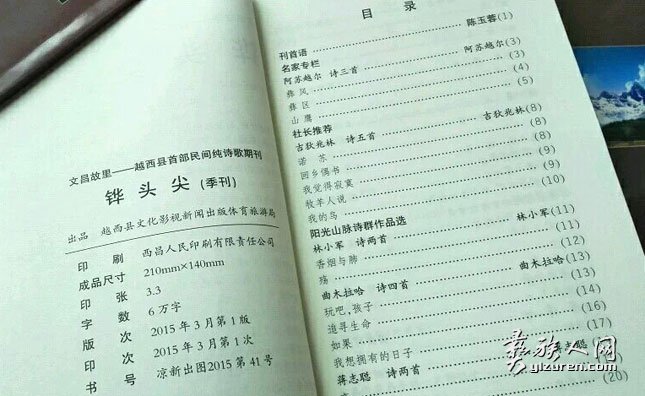 文昌故里——越西县首部民间纯诗歌期刊
铧头尖(季刊)
出品 越西县文化影视新闻出版体育旅游局
印刷 西昌人民印刷有限责任公司
成品尺寸 210mm×140mm
印张 3.3
字数 6万字
版次 2015年3月第1版
印次 2015年3月第1次
书号 凉新出图2015第41号
目录
刊首语 陈玉蓉(1)
名家专栏
阿苏越尔 诗三首 阿苏越尔(3)
彝风 (3)
彝区 (4)
山鹰 (5)
社长推荐
吉狄兆林 诗五首 吉狄兆林(8)
诺苏 (8)
回乡偶书 (8)
我觉得寂寞 (9)
牧羊人说 (10)
我的鸟
阳光山脉诗群作品选
林小军 诗两首 林小军(11)
香烟与肺 (11)
殇 (12)
曲木拉哈 诗四首 曲木拉哈(13)
玩吧,孩子 (13)
追寻生命 (14)
如果 (16)
我想拥有的日子 (17)
蒋志聪 诗两首 志聪
(20)
彝族人网
yizuren.com